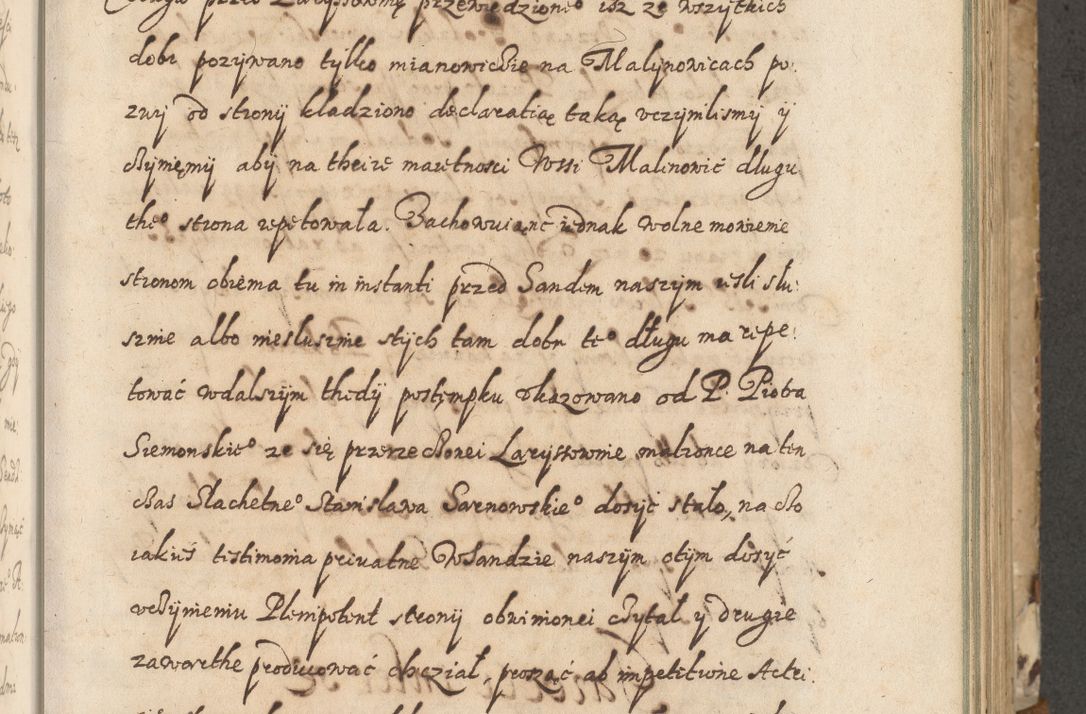 długu przed Laryssowną przewiedzione° isz ze wszytkich
dobr pozywano tylko mianowicżie na Malynowicach po:
zwij od stronij kładziono declaratią taką vczynilismij ij
cżijnięmij abij na theize maiętnosci Wssi Malinowic długu
the° strona repetowała. Zachowuiąnc iednak wolne mowienie
stronom obiema tu in instanti przed Sandem naszym iesli słu:
sznie albo niesłusznie stijch tam dobr te° długu ma repe:
tować wdalszym thedij postęmpku okazowano od P. Piotra
Siemonskie° ze się przerzecżonei Laryssownie małzonce na ten
cżas Slachetne° Stanislawa Sarnowskie° dosijć stało, na cżo
iakieś testimonia priuatne W Sandzie naszym otijm dosyć
vcżijnieniu Plenipotent stronij obwinionei cżytal y drugie
zawarthe producować chcział, prosząc ab impetitione Actei.